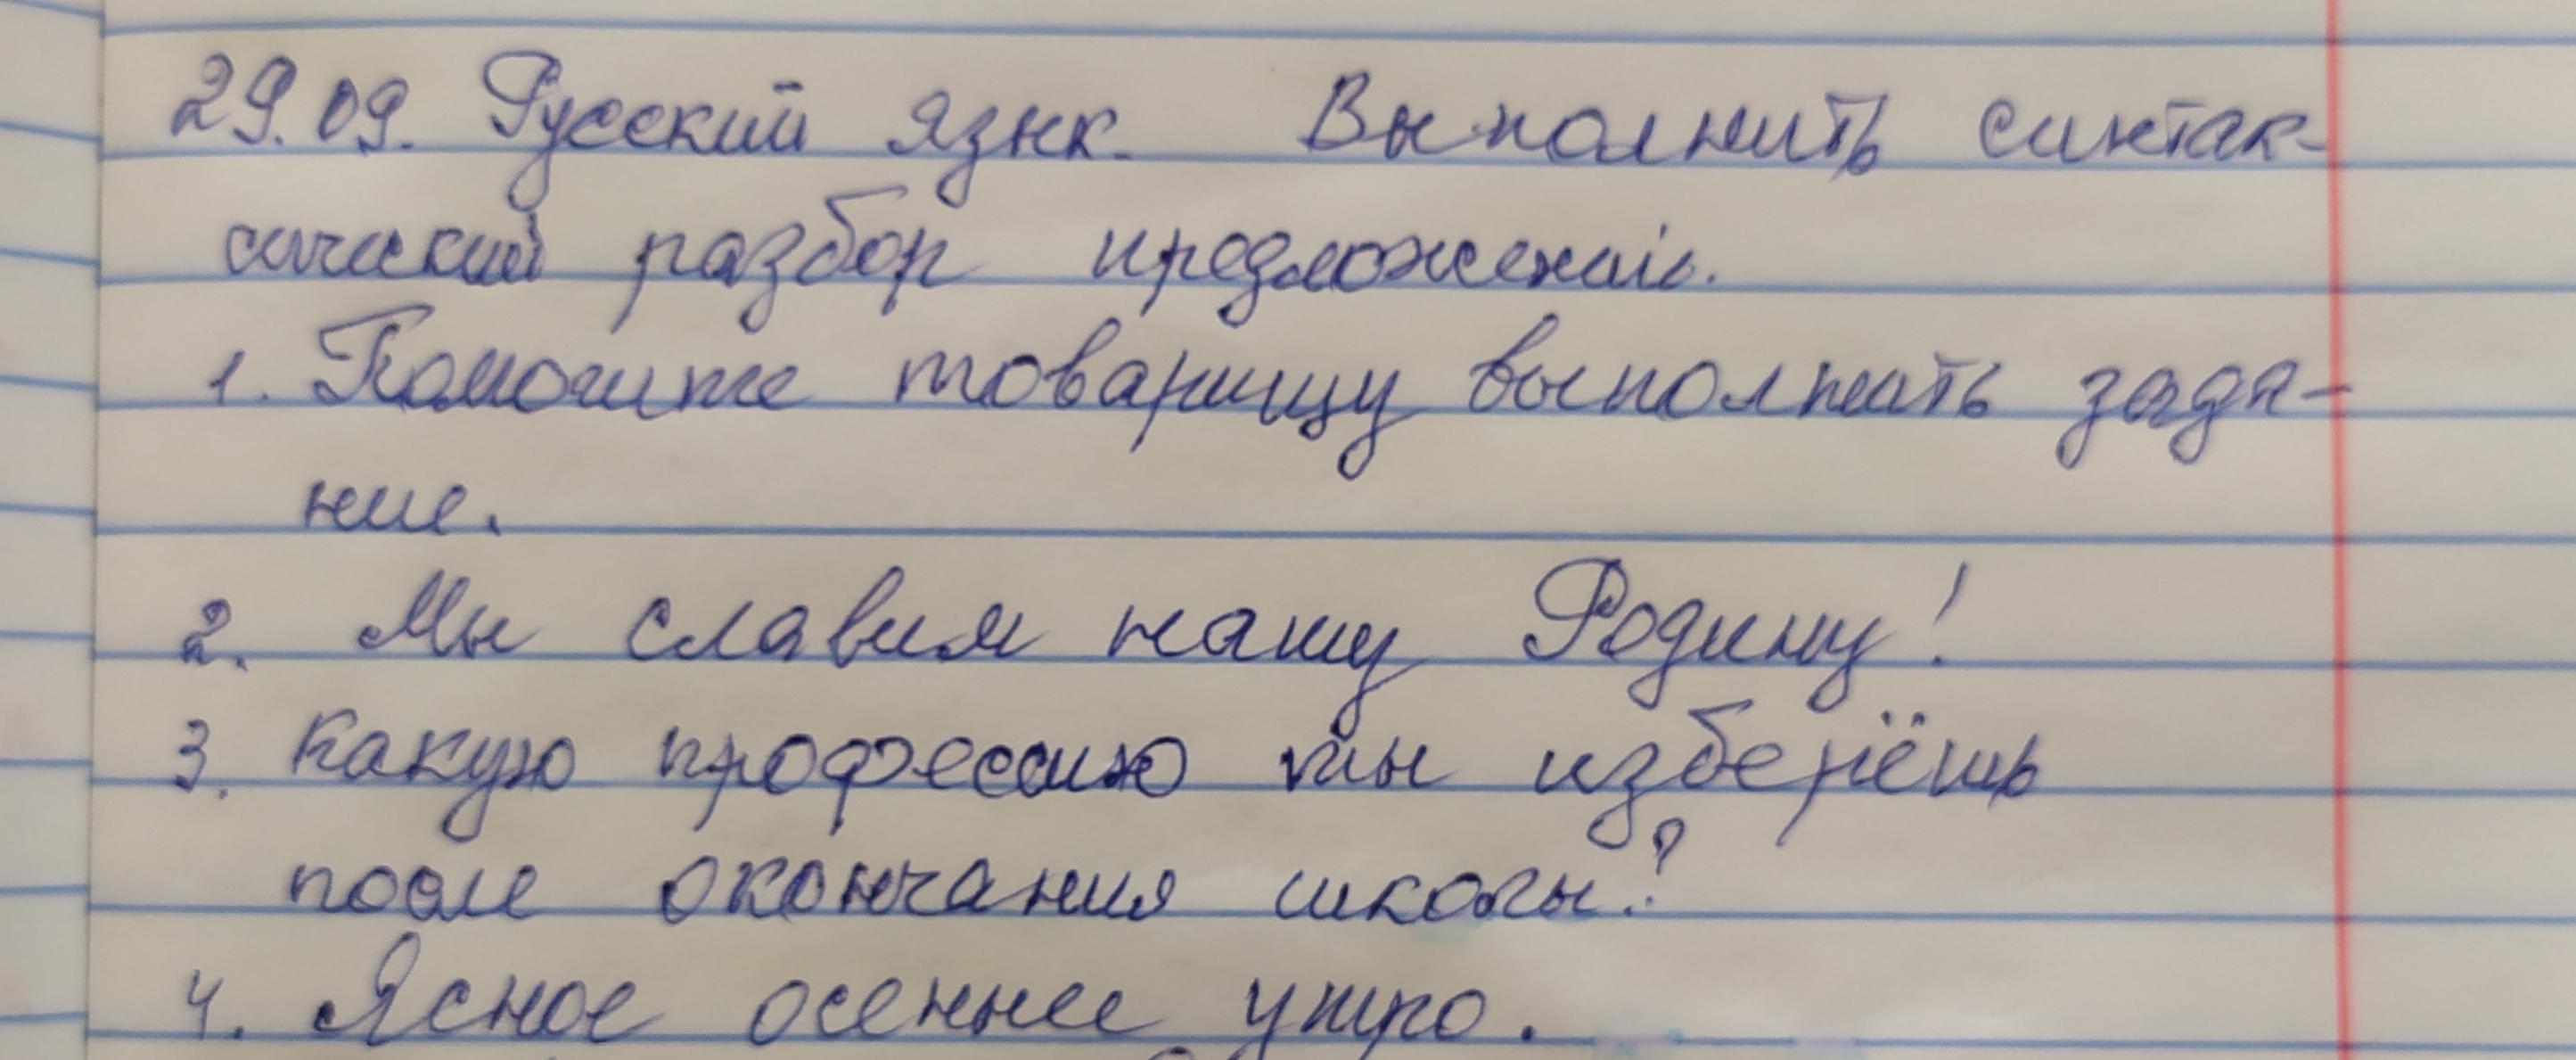 29.09. Русский язык. Выполнить синтак-
сический разбор предложений.
1. Помогите товарищу выполнить зада-
ние.
2. Мы славим нашу Родину!
3. Какую профессию ты изберёшь
после окончания школы?
4. Ясное осеннее утро.